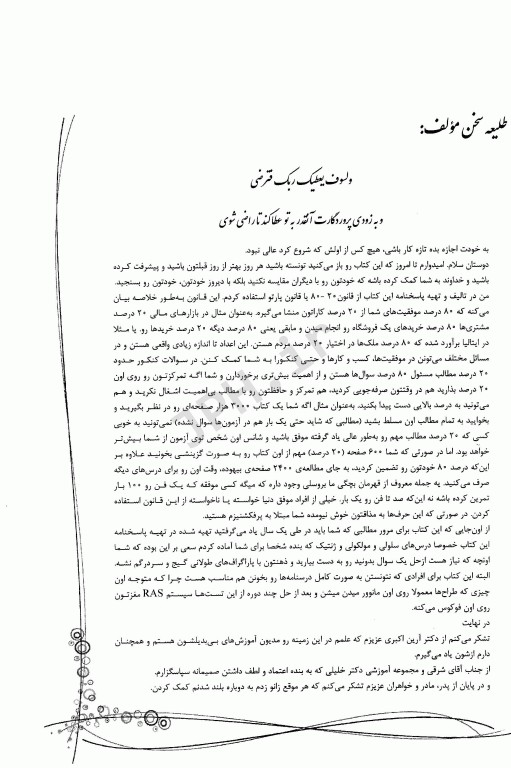 طلیعه سخن مؤلف:
ولسوف یعطیک ربک فترضی
و به زودی پروردگارت آنقدر به تو عطا کند تا راضی شوی
به خودت اجازه بده تازه کار باشی، هیچ کس از اولش که شروع کرد عالی نبود.
دوستان سلام. امیدوارم تا امروز که این کتاب رو باز می‌کنید تونسته باشید هر روز بهتر از روز قبلتون باشید و پیشرفت کرده
باشید و خداوند به شما کمک کرده باشه که خودتون رو با دیگران مقایسه نکنید بلکه با دیروز خودتون، خودتون رو بسنجید.
من در تالیف و تهیه پاسخنامه این کتاب از قانون ۲۰-۸۰ یا قانون پارتو استفاده کردم. این قانون به‌طور خلاصه بیان
می‌کنه که ۸۰ درصد موفقیت‌های شما از ۲۰ درصد کاراتون منشا می‌گیره. به‌عنوان مثال در بازارهای مالی ۲۰ درصد
مشتری‌ها ۸۰ درصد خریدهای یک فروشگاه رو انجام میدن و مابقی یعنی ۸۰ درصد دیگه ۲۰ درصد خریدها رو. یا مثلا
در ایتالیا برآورد شده که ۸۰ درصد ملک‌ها در اختیار ۲۰ درصد مردم هستن. این اعداد تا اندازه زیادی واقعی هستن و در
مسائل مختلف می‌تونن در موفقیت‌ها، کسب و کارها و حتی کنکورا به شما کمک کنن. در سوالات کنکور حدود
۲۰ درصد مطالب مسئول ۸۰ درصد سوال‌ها هستن و از اهمیت بیش‌تری برخوردارن و شما اگه تمرکزتون رو روی اون
۲۰ درصد بذارید هم در وقتتون صرفه‌جویی کردید، هم تمرکز و حافظتون رو با مطالب بی‌اهمیت اشغال نکردید و هم
می‌تونید به درصد بالایی دست پیدا بکنید. به‌عنوان مثال اگه شما یک کتاب ۳۰۰۰ هزار صفحه‌ای رو در نظر بگیرید و
بخوایید به تمام مطالب اون مسلط بشید (مطالبی که شاید حتی یک بار هم در آزمون‌ها سوال نشده) نمی‌تونید به خوبی
کسی که ۲۰ درصد مطالب مهم رو به‌طور عالی یاد گرفته موفق باشید و شانس اون شخص توی آزمون از شما بیش‌تر
خواهد بود. اما در صورتی که شما ۶۰۰ صفحه (۲۰ درصد) مهم از اون کتاب رو به صورت گزینشی بخونید علاوه بر
این‌که درصد ۸۰ خودتون رو تضمین کردید، به جای مطالعه‌ی ۲۴۰۰ صفحه‌ی بیهوده، وقت اون رو برای درس‌های دیگه
صرف می‌کنید. یه جمله معروف از قهرمان بچگی ما بروسلی وجود داره که میگه کسی موفقه که یک فن رو ۱۰۰ بار
تمرین کرده باشه نه این‌که صد تا فن رو یک بار. خیلی از افراد موفق دنیا خواسته یا ناخواسته از این قانون استفاده
کردن. در صورتی که این حرف‌ها به مذاقتون خوش نیومده شما مبتلا به پرفکشنیزم هستید.
از اون‌جایی که این کتاب برای مرور مطالبی که شما باید در طی یک سال یاد می‌گرفتید تهیه شده در تهیه پاسخنامه
این کتاب خصوصا درس‌های سلولی و مولکولی و ژنتیک که بنده شخصا برای شما آماده کردم سعی بر این بوده که شما
اونچه که نیاز هست ازحل یک سوال بدونید رو به دست بیارید و ذهنتون با پاراگراف‌های طولانی گیج و سردرگم نشه.
البته این کتاب برای افرادی که نتونستن به صورت کامل درسنامه‌ها رو بخونن هم مناسب هست چرا که متوجه اون
چیزی که طراح‌ها معمولا روی اون مانوور میدن میشن و بعد از حل چند دوره از این تست‌ها سیستم RAS مغزتون
روی اون فوکوس می‌کنه.
در نهایت
تشکر می‌کنم از دکتر آرین اکبری عزیزم که علمم در این زمینه رو مدیون آموزش‌های بی‌بدیلشون هستم و همچنان
دارم ازشون یاد می‌گیرم.
از جناب آقای شرقی و مجموعه آموزشی دکتر خلیلی که به بنده اعتماد و لطف داشتن صمیمانه سپاسگزارم.
و در پایان از پدر، مادر و خواهران عزیزم تشکر می‌کنم که هر موقع زانو زدم به دوباره بلند شدنم کمک کردن.